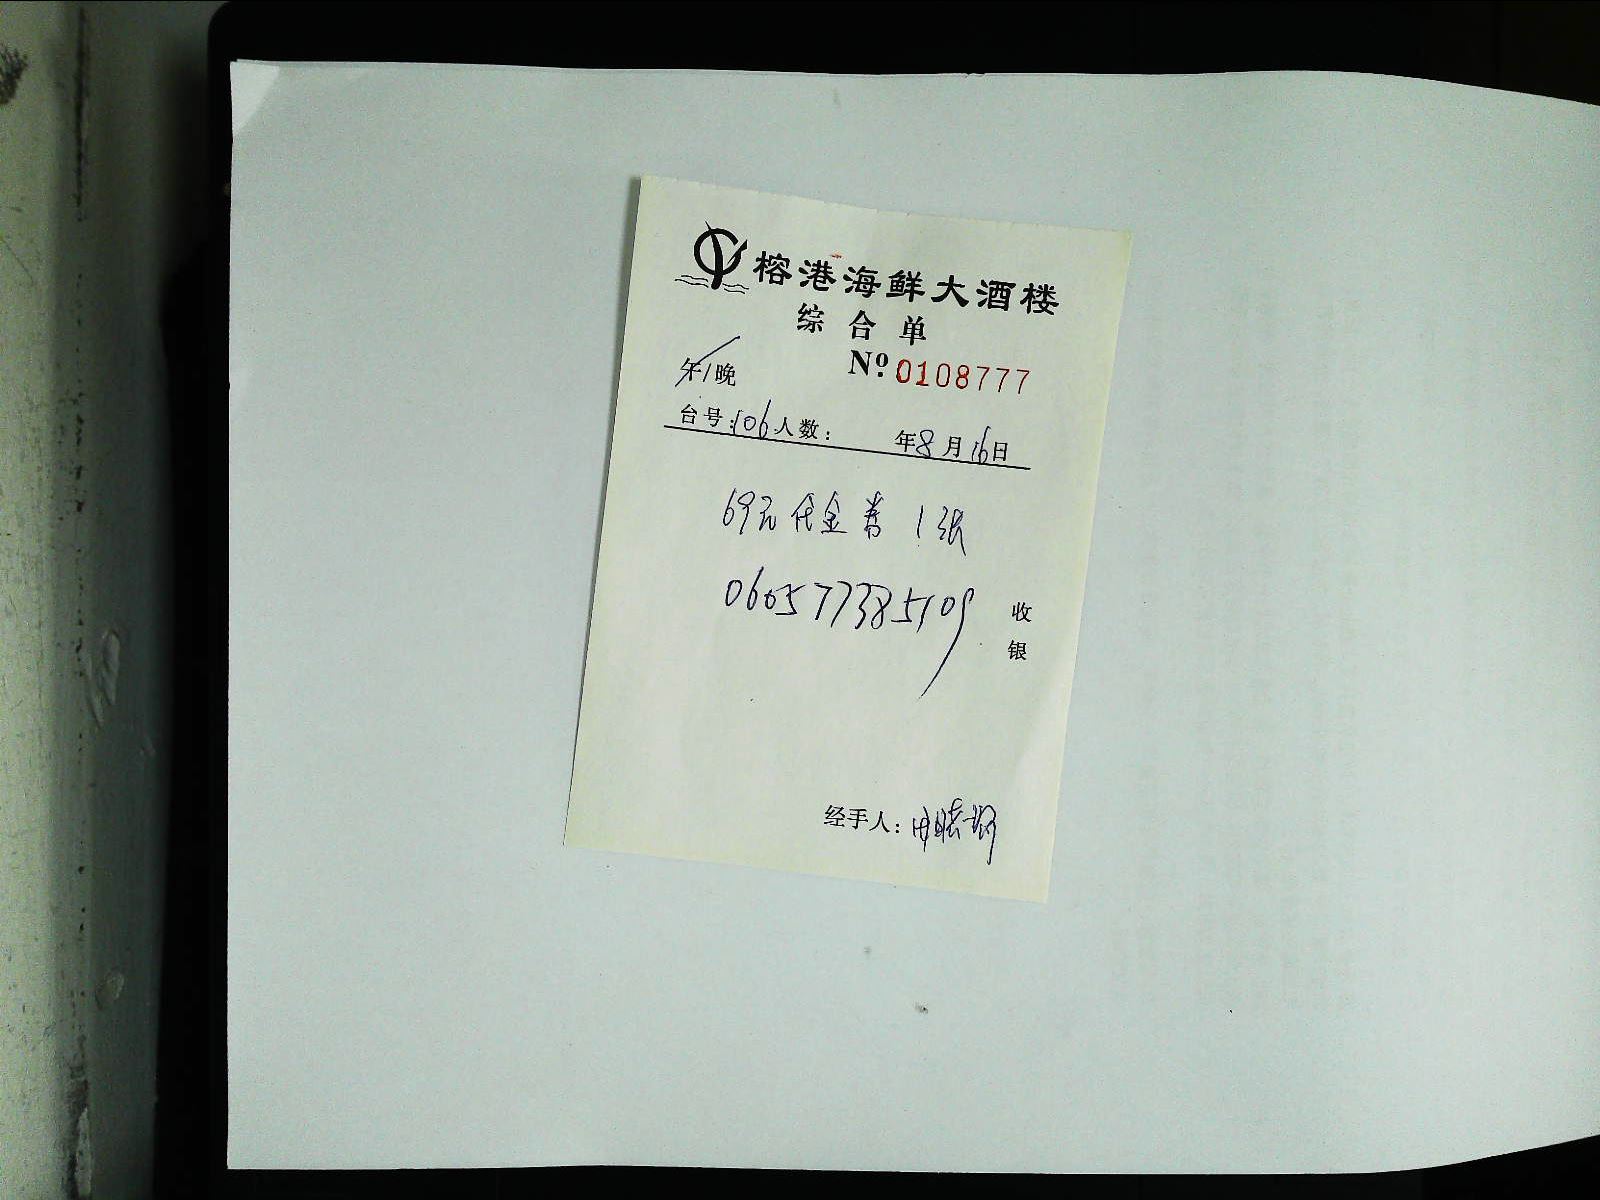 榕港海鲜大酒楼
综合单
№ 0108777
午/晚
台号:106人数: 年8月16日
69元代金券 1张
060577385109
收银
经手人: